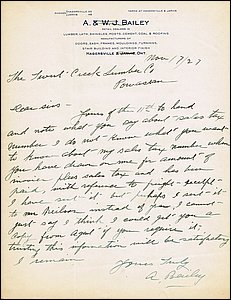 A. & W. J. BAILEY
RETAIL DEALERS IN
LUMBER, LATH, SHINGLES, POSTS, CEMENT, COAL & ROOFING
MANUFACTURERS OF
DOORS, SASH, FRAMES, MOULDINGS, TURNINGS,
STAIR BUILDING AND INTERIOR FINISH
HAGERSVILLE & JARVIS, ONT.
Nov 17/27
The Trout Creek Lumber Co
Powassan
Dear sirs -
Yours of the 11th to hand
and note what you say about sales tax
number I do not know what you want
to know about my sales tax number when
you have drawn on me for amount of
invoice plus sales tax and has been
paid, with reference to freight receipt -
I have sent it but perhaps I sent it
to Mr Neilson instead of you I cannot
just say I think I could get you a
copy from Agent if you require it,
trusting this information will be satisfactory
I remain
Yours truly
A. Bailey